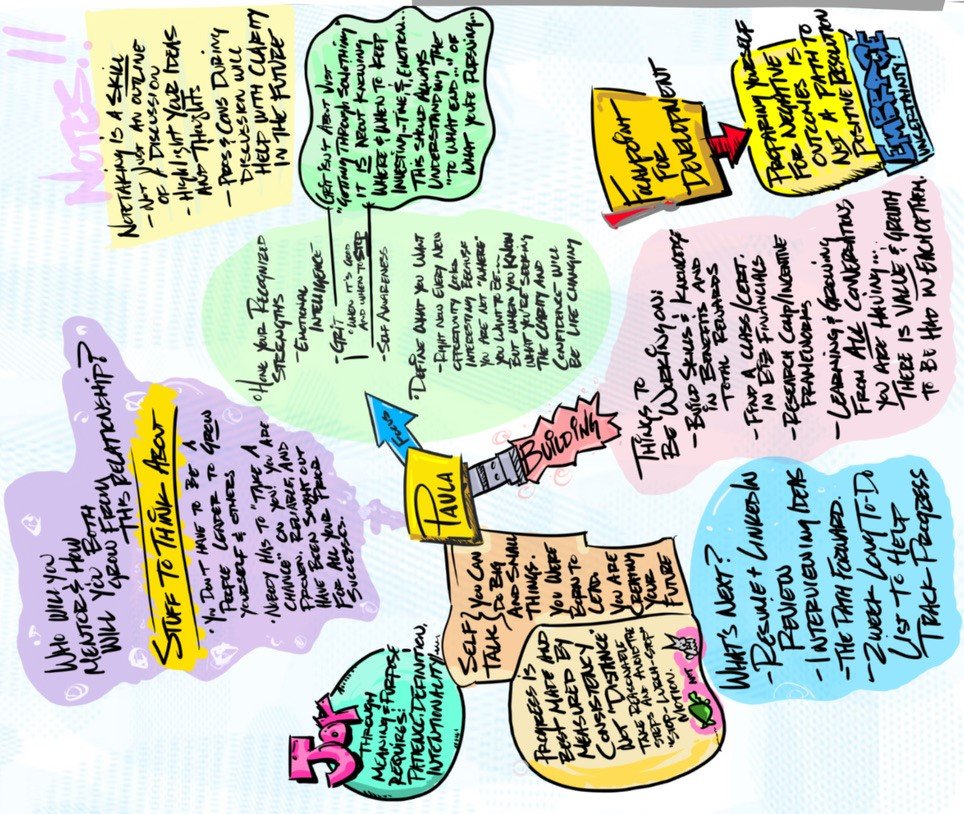 NOTES..!!
WHO WILL YOU
MENTOR & HOW
WILL YOU BOTH
GROW FROM
THIS RELATIONSHIP?
STUFF TO THINK ABOUT
• YOU DON'T HAVE TO BE A
PEOPLE LEADER TO GROW
YOURSELF & OTHERS
• NOBODY HAS TO "TAKE A
CHANCE ON YOU" YOU ARE
PROVEN, RELIABLE, AND
HAVE BEEN SOUGHT OUT
FOR ALL YOUR PRIOR
SUCCESSES.
NOTETAKING IS A SKILL
- NOT JUST AN OUTLINE
OF A DISCUSSION
- HIGHLIGHT YOUR IDEAS
AND THOUGHTS
- PROS & CONS DURING
DISCUSSION WILL
HELP WITH CLARITY
IN THE FUTURE
JOY
THROUGH
MEANING & PURPOSE
REQUIRES:
PATIENCE, DEFINITION,
INTENTIONALITY...
• HAVE YOUR RECOGNIZED
STRENGTHS
- EMOTIONAL
INTELLIGENCE
- GRIT
"WHEN IT'S GOOD
AND WHEN TO STOP
- SELF AWARENESS
GRIT ISN'T ABOUT JUST
"GETTING THROUGH SOMETHING"
IT IS ABOUT KNOWING
WHERE & WHEN TO KEEP
INVESTING TIME & EMOTION.
THIS SHOULD ALWAYS
UNDERSTANDING THE
"TO WHAT END..." OF
WHAT YOU'RE PURSUING...
FOCUS
PAULA
• DEFINE WHAT YOU WANT
- RIGHT NOW EVERY NEW
OPPORTUNITY LOOKS
INTERESTING BECAUSE
YOU ARE NOT "WHERE"
YOU WANT TO BE...
BUT WHEN YOU KNOW
WHAT YOU'RE SEEKING
THE CLARITY AND
CONFIDENCE WILL
BE LIFE CHANGING
SELF
TALK
YOU CAN
DO BIG
AND SMALL
THINGS.
YOU WERE
BORN TO
LEAD.
YOU ARE
CREATING
YOUR
FUTURE
PROGRESS IS
BEST MADE AND
MEASURED BY
CONSISTENCY
NOT DISTANCE
TAKE REASONABLE
AND ACHIEVABLE
STEPS
NOT
BUILDING
THINGS TO
BE WORKING ON:
- BUILD SKILLS & KNOWLEDGE
IN BENEFITS AND
TOTAL REWARDS
- FIND A CLASS/CERT.
IN BIZ FINANCIALS
- RESEARCH COMP/INCENTIVE
FRAMEWORKS
- LEARNING & GROWING
FROM ALL CONVERSATIONS
YOU ARE HAVING...
THERE IS VALUE & GROWTH
TO BE HAD IN EACH OF THEM.
FOUNDATION
FOR
DEVELOPMENT
PREPARING YOURSELF
FOR NEGATIVE
OUTCOMES IS
NOT A PATH TO
POSITIVE RESOLUTION
EMBRACE
UNCERTAINTY
WHAT'S NEXT?
- RESUME & LINKEDIN
REVIEW
- INTERVIEWING IDEAS
- THE PATH FORWARD.
- 2 WEEK LONG TO-DO
LIST TO HELP
TRACK PROGRESS